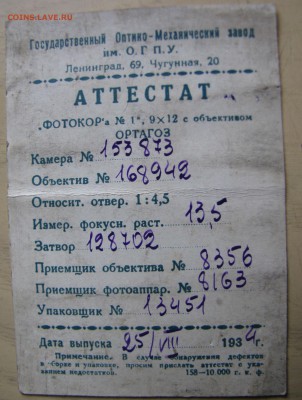 COINS.LAVE.RU
Государственный Оптико-Механический завод
им. О.Г П.У.
Ленинград, 69, Чугунная, 20
АТТЕСТАТ
„ФОТОКОР“а № 1", 9×12 с объективом
ОРТАГОЗ
Камера № 153873
Объектив № 168942
Относит. отвер. 1:4,5
Измер. фокусн. раст. 13,5
Затвор 128702
Приемщик объектива № 8356
Приемщик фотоаппар. № 8163
Упаковщик № 13451
Дата выпуска 25/VIII 1934г.
Примечание. В случае обнаружения дефектов
в сборке и упаковке, просим прислать аттестат с ука-
занием недостатков. 158-10.000 г. к. ф.